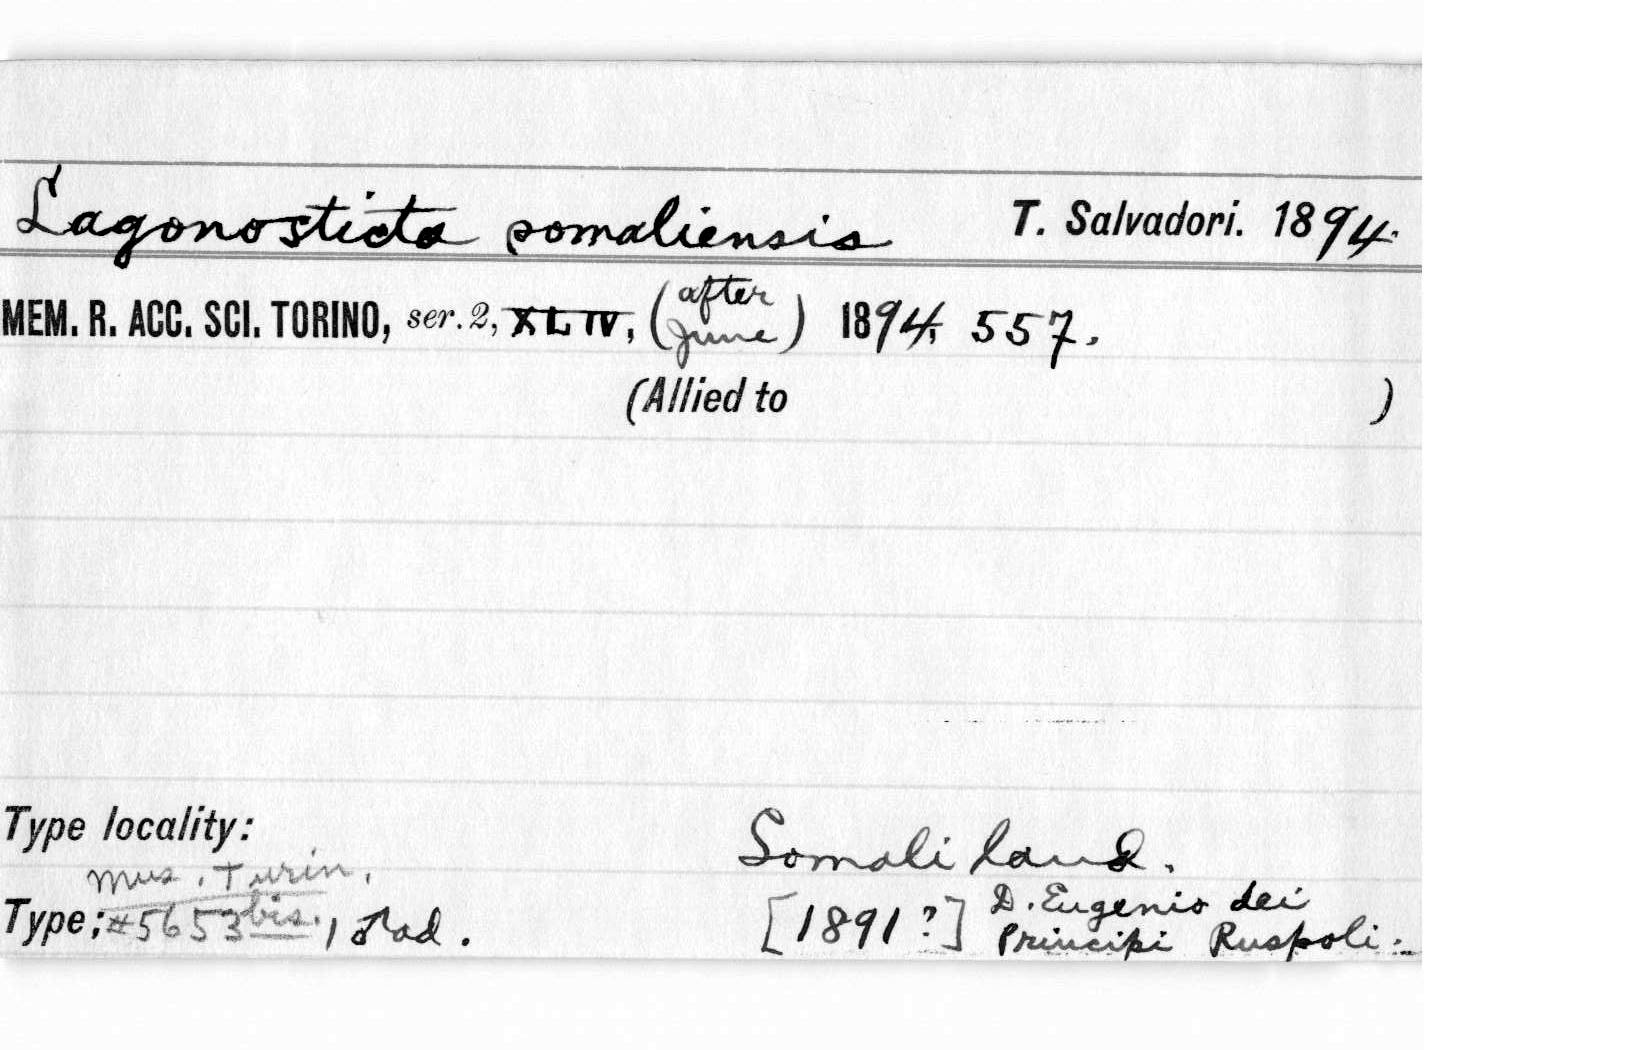 Lagonosticta somaliensis T. Salvadori. 1894.
MEM. R. ACC. SCI. TORINO, ser. 2, XLIV, (after June) 1894, 557.
(Allied to )
Type locality: Somaliland.
Mus. Turin.
Type; #5653 bis. 1 ♂ ad. [1891?] D. Eugenio dei
Principi Ruspoli.